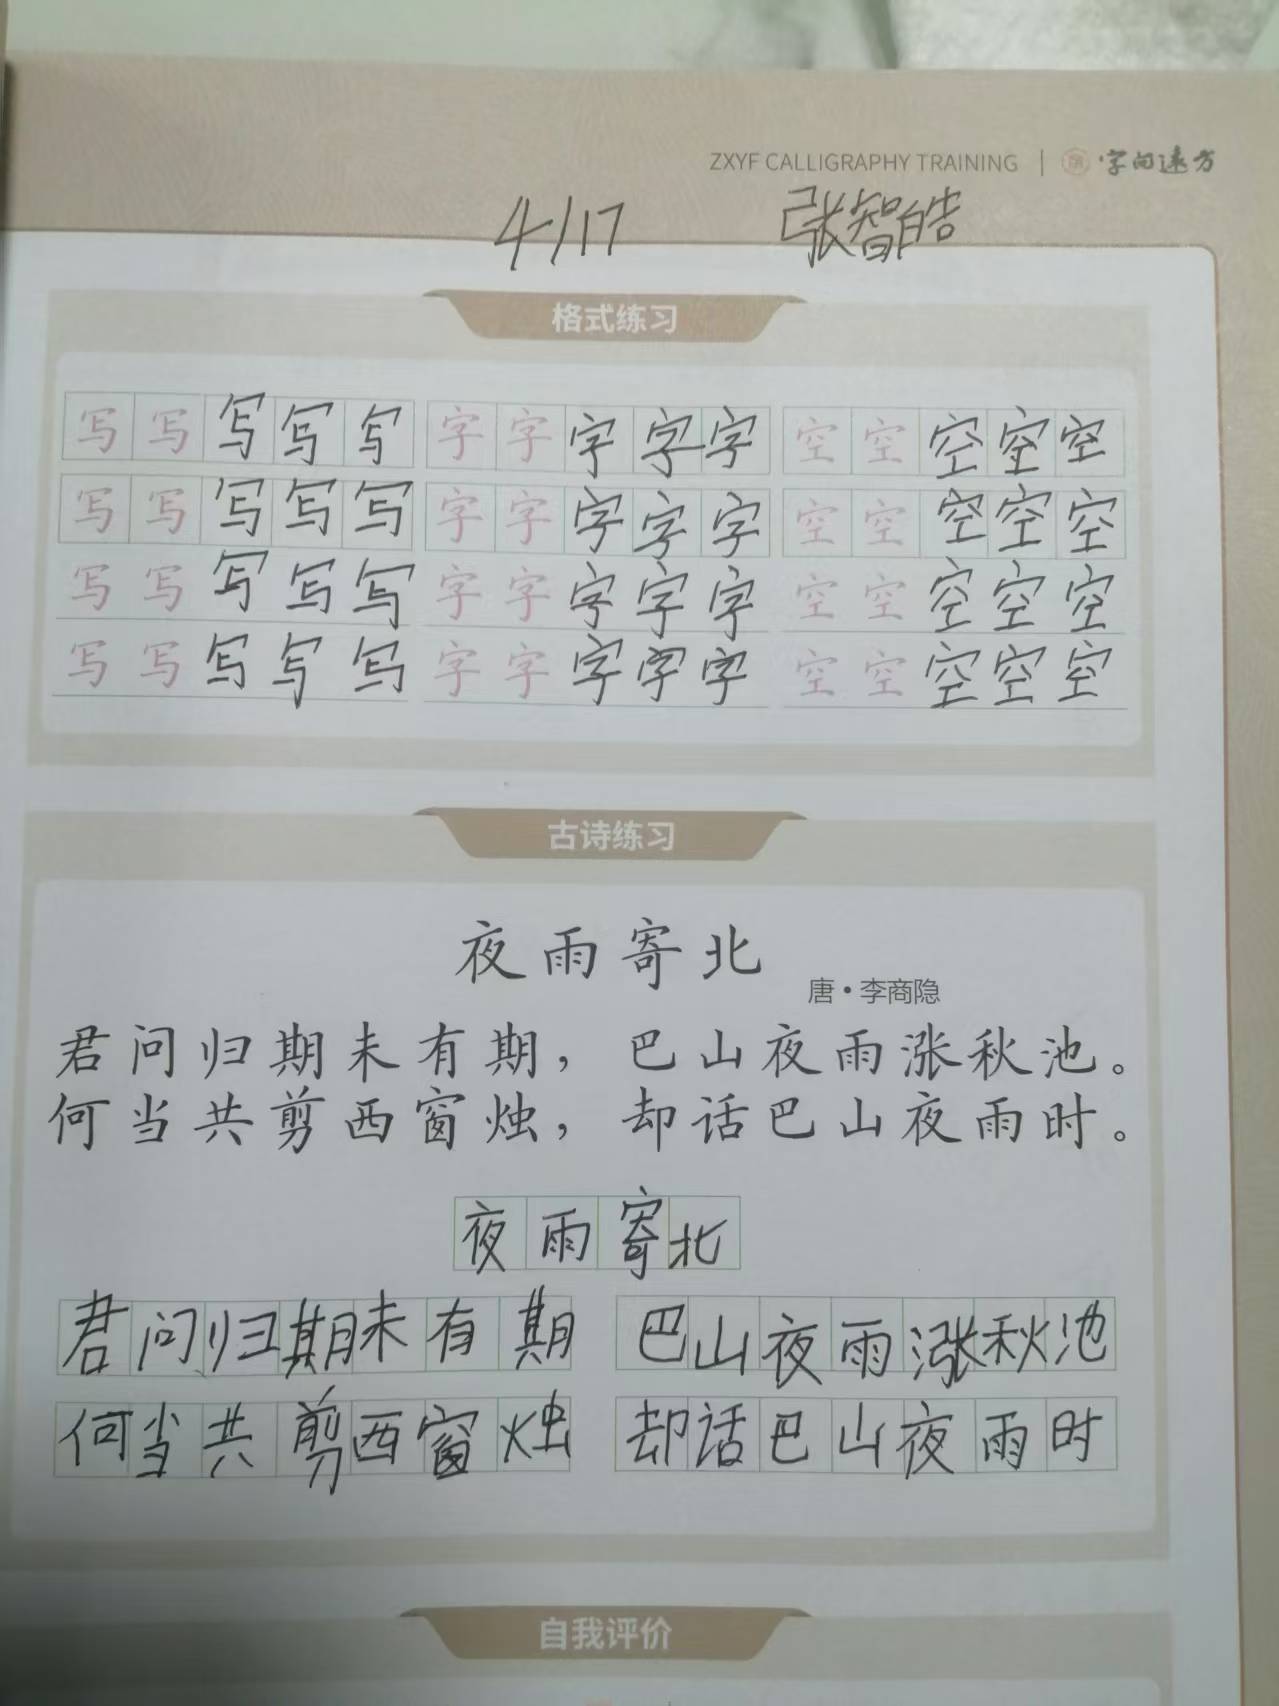 ZXYF CALLIGRAPHY TRAINING | 字间远方
4/17 张智皓
格式练习
写写写写写 字字字字字 空空空空空
写写写写写 字字字字字 空空空空空
写写写写写 字字字字字 空空空空空
写写写写写 字字字字字 空空空空空
古诗练习
夜雨寄北
唐·李商隐
君问归期未有期，巴山夜雨涨秋池。
何当共剪西窗烛，却话巴山夜雨时。
夜雨寄北
君问归期未有期 巴山夜雨涨秋池
何当共剪西窗烛 却话巴山夜雨时
自我评价